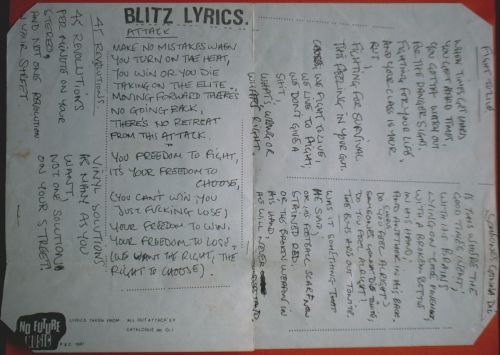 BLITZ LYRICS.
ATTACK
MAKE NO MISTAKES WHEN
YOU TURN ON THE HEAT,
YOU WIN OR YOU DIE
TAKING ON THE ELITE
MOVING FORWARD THERE'S
NO GOING BACK,
THERE'S NO RETREAT
FROM THIS ATTACK.
YOU FREEDOM TO FIGHT,
IT'S YOUR FREEDOM TO
CHOOSE,
(YOU CAN'T WIN YOU
JUST FUCKING LOSE)
YOUR FREEDOM TO WIN.
YOUR FREEDOM TO LOSE,
(WE WANT THE RIGHT, THE
RIGHT TO CHOOSE).
45 REVOLUTIONS
45 REVOLUTIONS
PER MINUTE ON YOUR
STEREO,
AND NOT ONE REVOLUTION
ON YOUR STREET
VINYL SOLUTIONS
AS MANY AS YOU
WANT
NOT ONE SOLUTION
ON YOUR STREET.
FIGHT TO LIVE
WHEN TIMES GET HARD
YOU GOTTA WATCH OUT
FOR THE DANGER SIGNS,
FIGHTING FOR YOUR LIFE
AND YOUR CLASS IS YOUR
FIGHTING FOR SURVIVAL
THIS FEELING IN YOUR GUT.
WE FIGHT TO LIVE,
WE LIVE TO FIGHT,
WE DON'T GIVE A
SHIT
WHAT'S WRONG OR
WHAT'S RIGHT.
IS THIS WHERE THE
GOOD TIMES WENT,
WITH NO BRAINS
LYING ON THE PAVEMENT,
WITH A BROKEN BOTTLE
IN HIS HAND,
DO YOU FEEL ALRIGHT?
DO YOU FEEL ALRIGHT?
THE BOYS ARE OUT TONITE.
WAS IT SOMETHING
HE SAID,
OR HIS FOOTBALL SCARF NOW
STAINED RED.
OR THE BROKEN WEAPON IN
HIS HAND,
WE WILL NEVER
UNDERSTAND.
NO FUTURE
MUSIC
LYRICS TAKEN FROM: ALL OUT ATTACK E.P.
CATALOGUE No OI.1